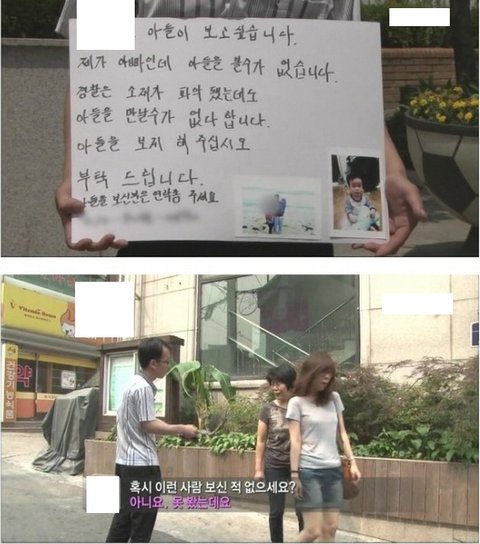 아들이 보고싶습니다.
제가 아빠인데 아들을 볼수가 없습니다.
경찰은 소재가 파악 됐는데도
아들을 만날수가 없다 합니다.
아들을 보게 해 주십시오
부탁 드립니다.
아들을 보신분은 연락좀 주세요
Vitamin House
약
건강기능식품
혹시 이런 사람 보신 적 없으세요?
아니요, 못 봤는데요